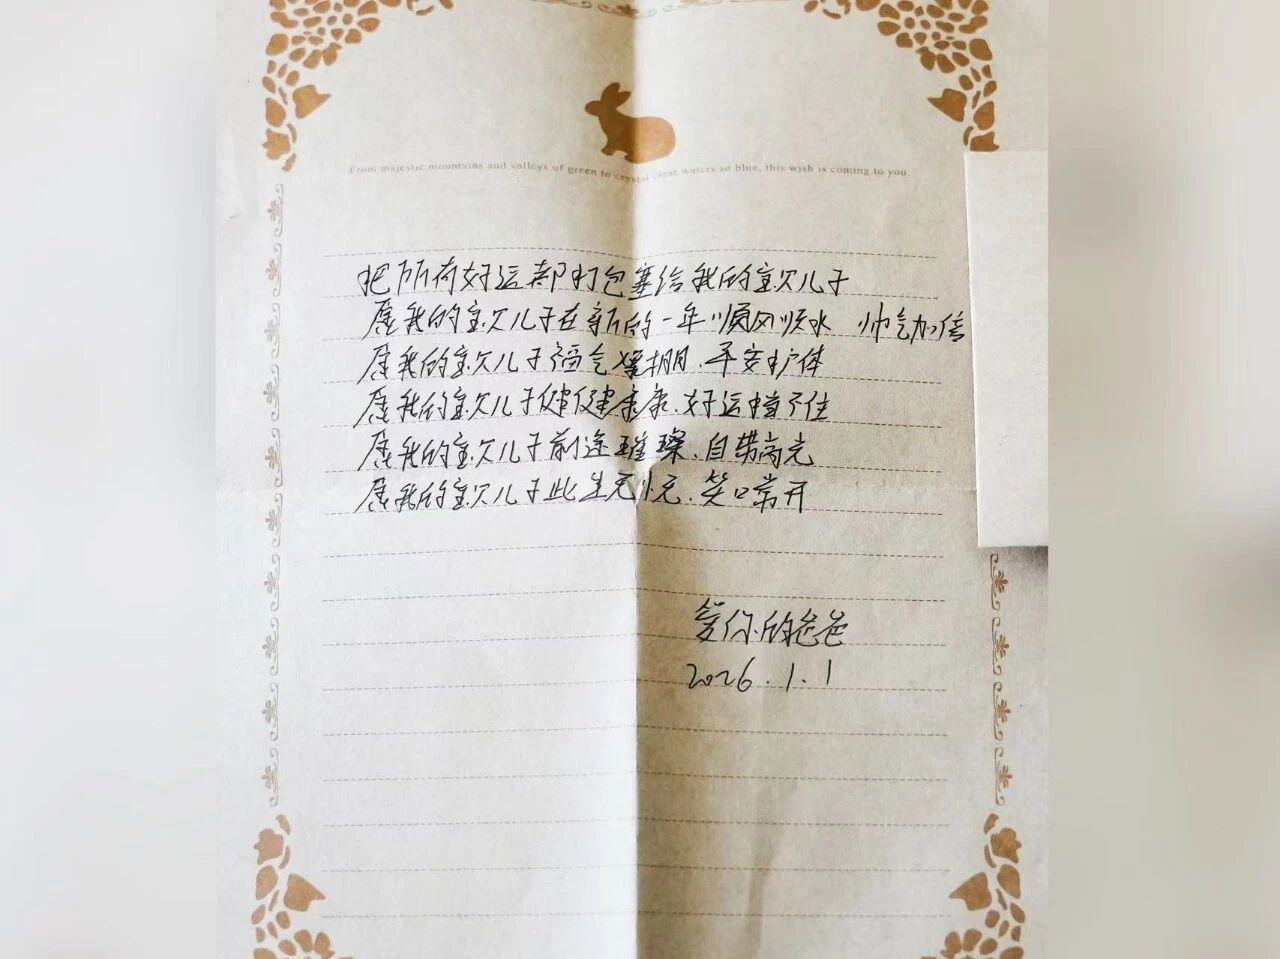 From majestic mountains and valleys of green to crystal clear waters so blue, this wish is coming to you.
把所有好运都打包塞给我的宝贝儿子
愿我的宝贝儿子在新的一年顺风顺水 帅气加倍
愿我的宝贝儿子福气爆棚、平安护体
愿我的宝贝儿子健健康康、好运挡不住
愿我的宝贝儿子前途璀璨、自带高光
愿我的宝贝儿子此生无忧、笑口常开
爱你的爸爸
2026.1.1